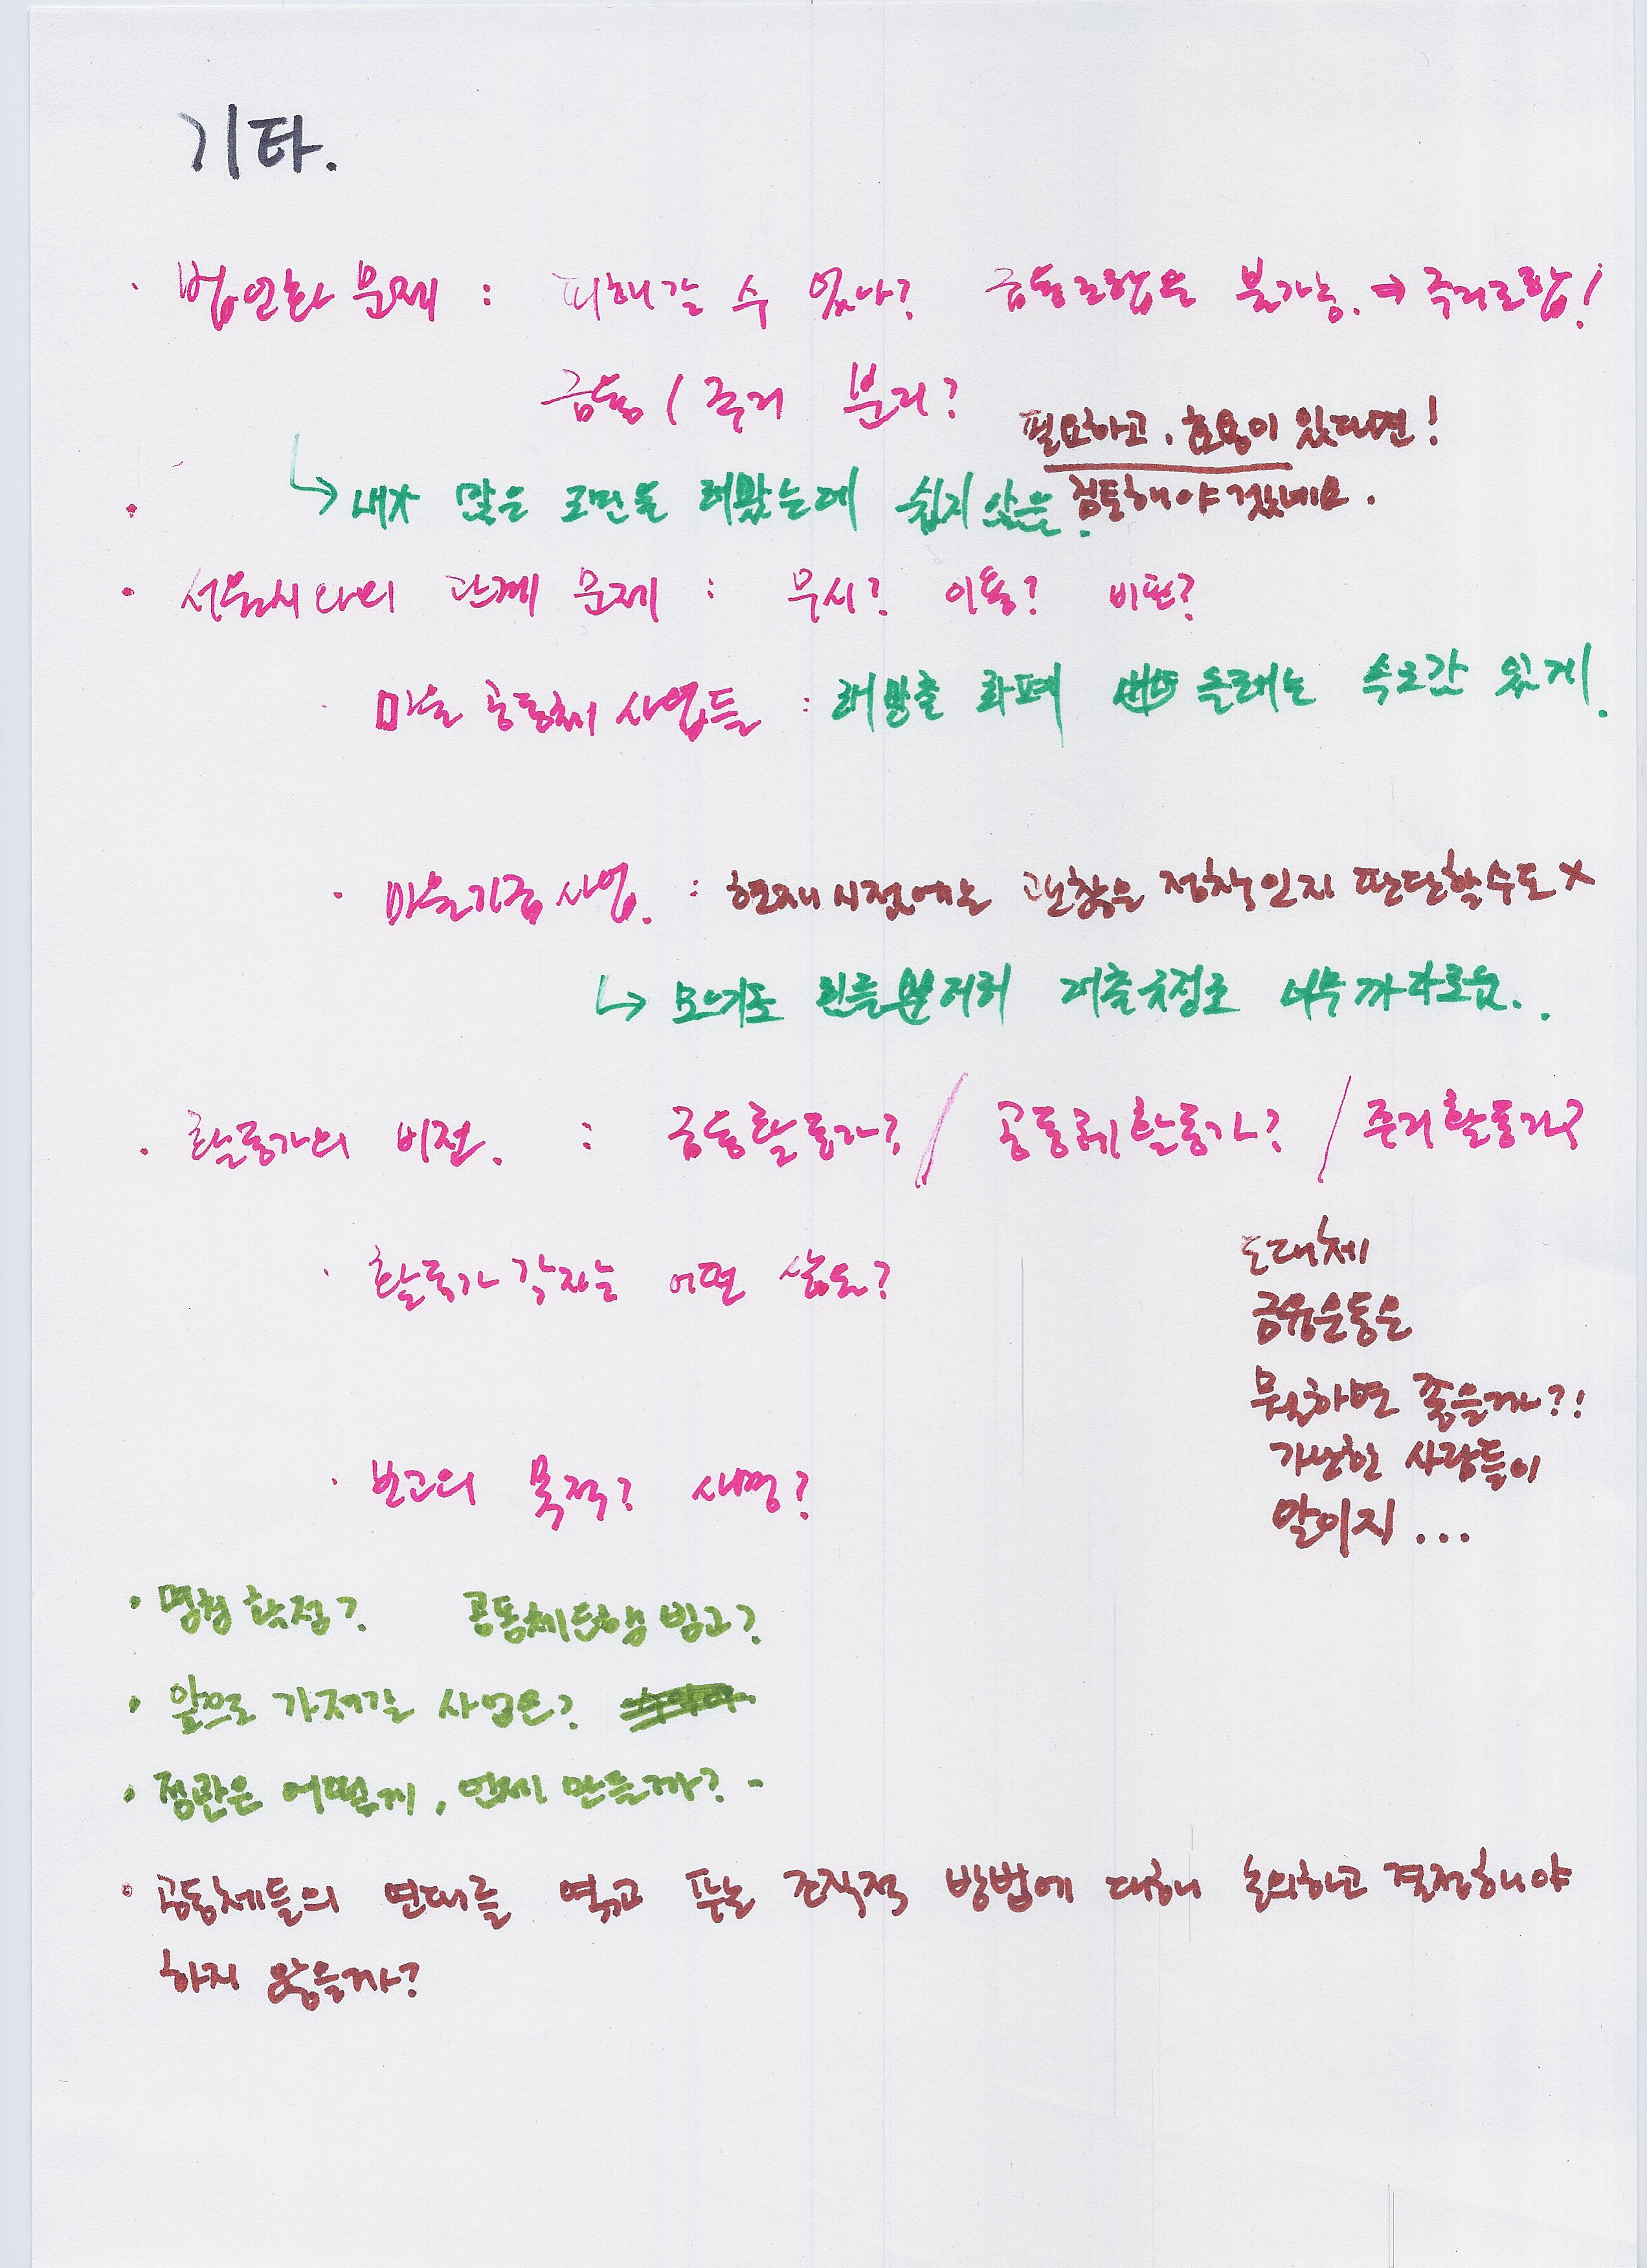 기타.
· 법인화 문제 : 피해갈 수 있나? 금융조합은 불가능. → 주거조합!
금융 / 주거 분리?
필요하고, 효용이 있다면!
검토해야겠네요.
↳ 내가 많은 고민을 해봤는데 쉽지않음.
·
· 서울시와의 관계 문제 : 무시? 이용? 비판?
· 마을 공동체 사업들 : 해방촌 화폐 올해는 수오간 있게.
· 마을기금사업. : 현재 시점에는 괜찮은 정책인지 판단할수도 X
↳ 모으기도 힘들 대출규정도 너무 까다로움..
· 활동가의 비전. : 금융활동가? / 공동체활동가? / 주거활동가?
· 활동가 각자는 어떤 삶도?
도대체
금융운동은
뭘하면 좋을까?!
가난한 사람들이
말이지 ...
· 빈고의 목적? 사명?
· 명칭 확정? 공동체은행 빈고?
· 앞으로 가져갈 사업은?
· 정관은 어떻게, 언제 만들까? -
· 공동체들의 연대를 엮고 푸는 조직적 방법에 대해 논의하고 결정해야
하지 않을까?